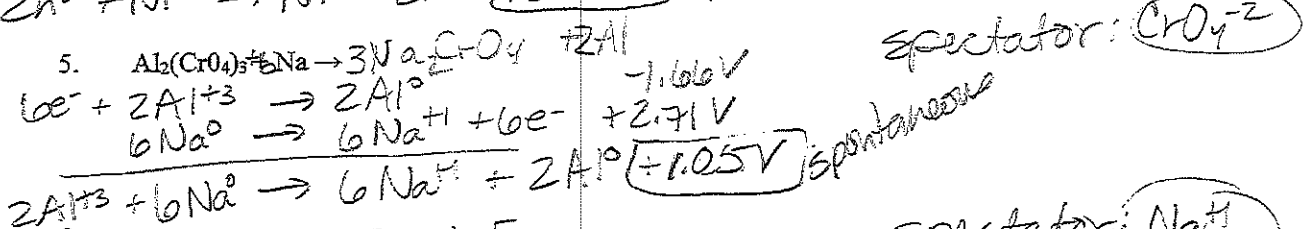 5. Al₂(Cr0₄)₃+6Na → 3Na₂CrO₄ + 2Al
spectator: CrO₄⁻²
6e⁻ + 2Al⁺³ → 2Al⁰ -1.66V
6Na⁰ → 6Na⁺¹ + 6e⁻ +2.71V
2Al⁺³ + 6Na⁰ → 6Na⁺¹ + 2Al⁰ +1.05V spontaneous
spectator: Na⁺¹